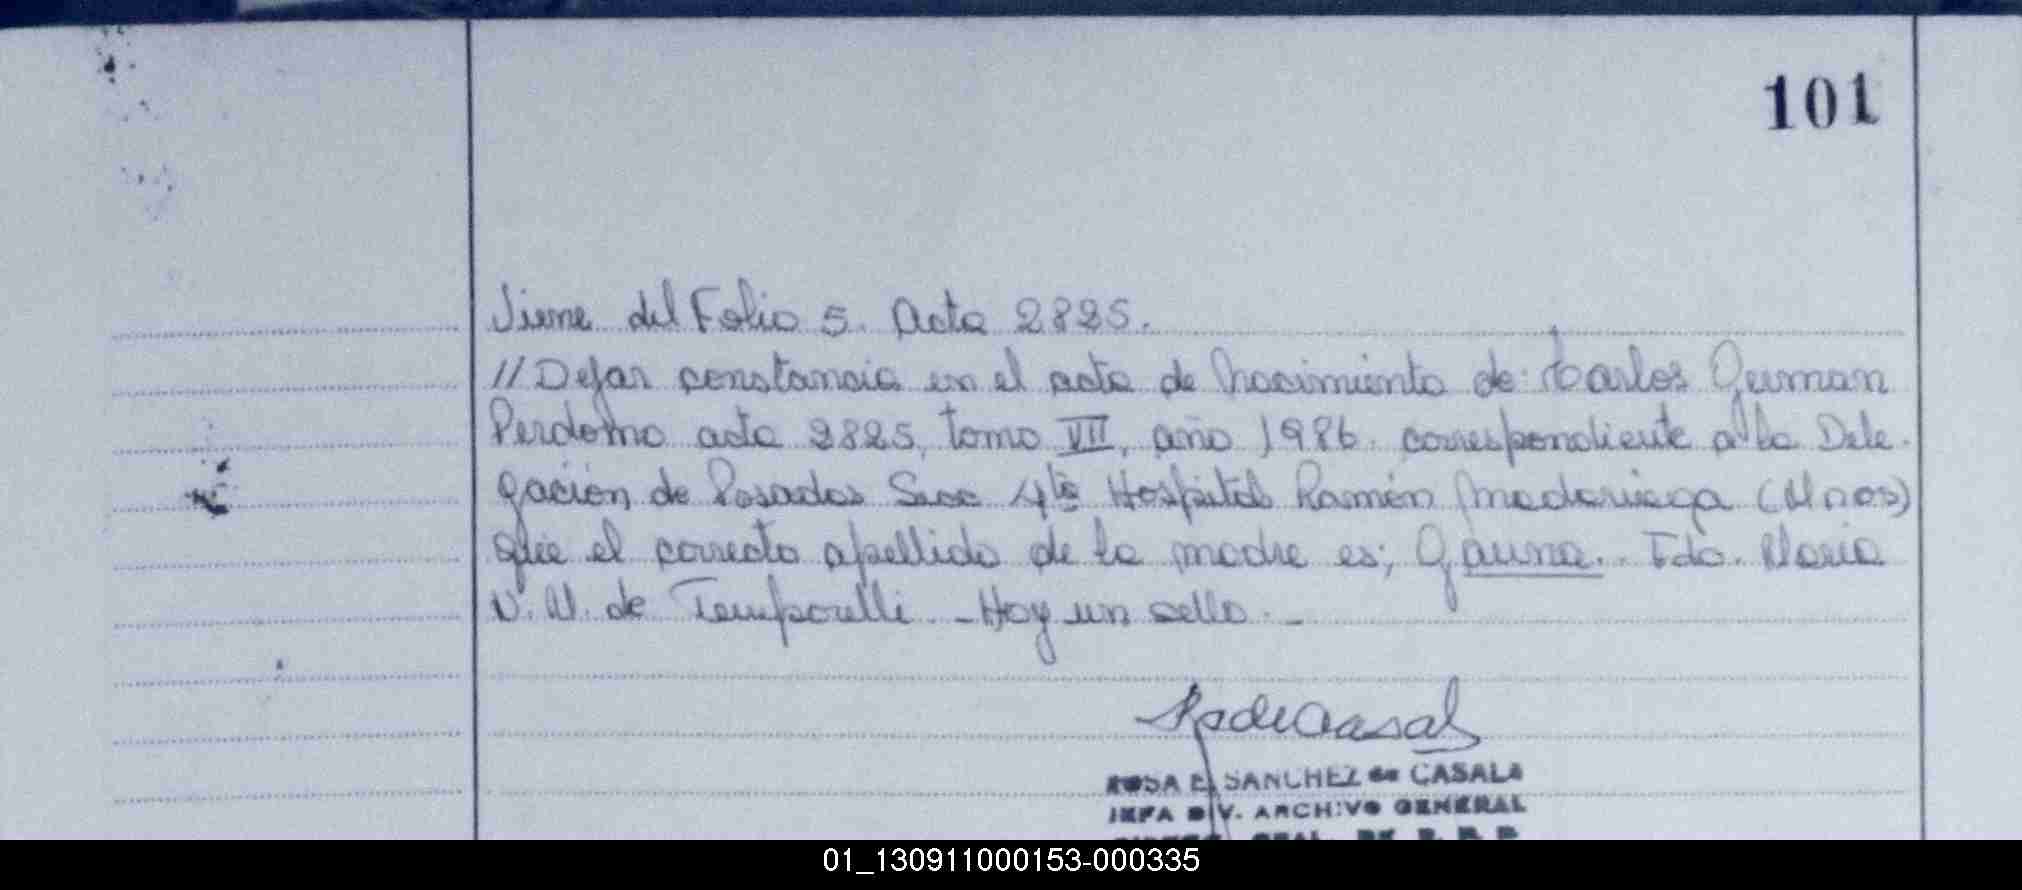 101
Viene del Folio 5. Acta 2825.
// Dejar constancia en el acta de Nacimiento de: Carlos German
Perdomo acta 2825, tomo VII, año 1986. correspondiente a la Dele-
gación de Posadas Secc 4ta Hospital Ramón Madariaga
que el correcto apellido de la madre es; Gauna.. Fdo. Maria
de Temporelli. - Hay un sello. -
ROSA E. SANCHEZ de CASALA
JEFA DIV. ARCHIVO GENERAL
01_130911000153-000335